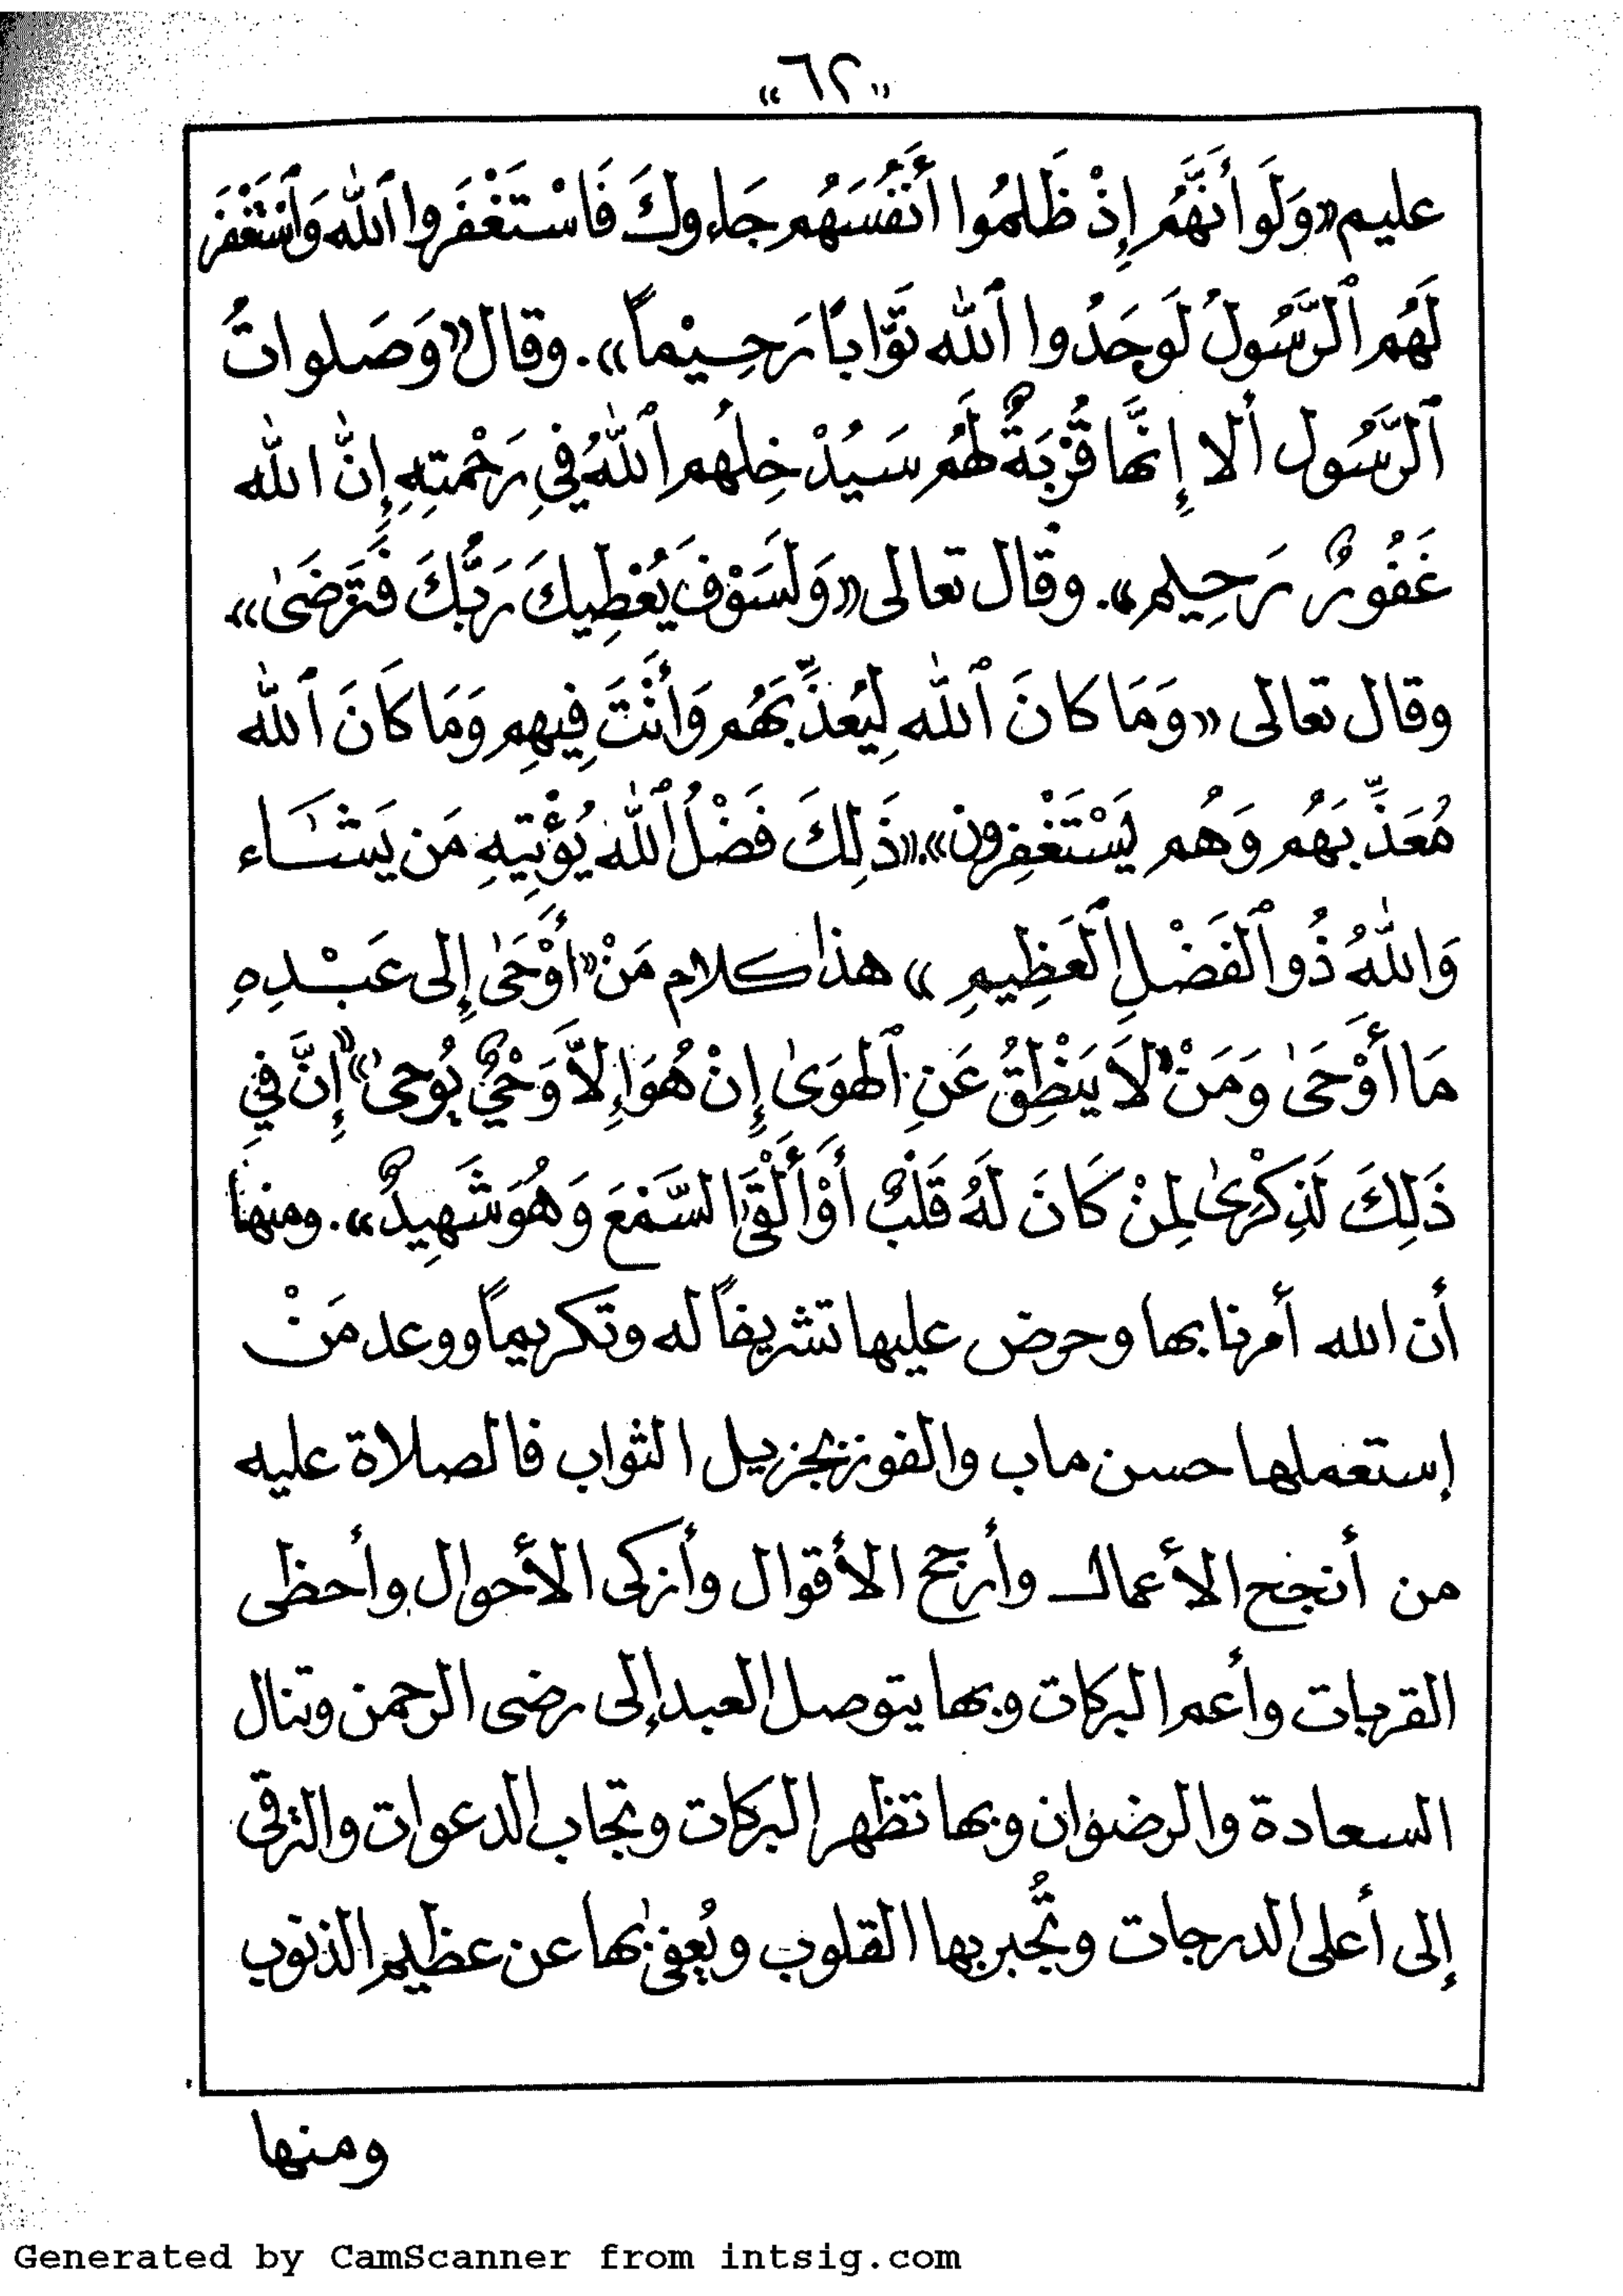 «٦٢»
عليم «وَلَوأَنَّهُم إِذْ ظَلَمُوا أَنفُسَهُم جَاءوكَ فَاسْتَغْفَروا ٱللّٰه وَٱسْتَغْفَرَ
لَهُم ٱلرَّسُولُ لَوجَدُوا ٱللّٰه تَوَّابًا رَحِيْماً». وقال «وَصَلواتُ
ٱلرَّسُول ألا إِنَّها قُرْبَةٌ لَهُم سَيُدْخِلُهُم ٱللّٰهُ فِي رَحْمَتِهِ إِنَّ اللّٰه
غَفُورٌ رَحِيم». وقال تعالى «وَلَسَوْفَ يُعْطِيكَ رَبُّكَ فَتَرْضَىٰ»
وقال تعالى «وَمَا كانَ ٱللّٰه لِيُعَذِّبَهُم وَأَنْتَ فِيهِم وَمَا كَانَ ٱللّٰه
مُعَذِّبَهُم وَهُم يَسْتَغْفِرون». «ذَلِكَ فَضْلُ ٱللّٰه يُؤْتِيهِ مَن يَشَاء
وَاللّٰهُ ذُو ٱلْفَضْلِ ٱلْعَظِيمِ» هذا كلام مَنْ «أَوْحَىٰ إِلى عَبْدِهِ
مَا أَوْحَىٰ وَمَنْ «لاَ يَنْطِقُ عَنِ ٱلهوَىٰ إِنْ هُوَ إِلاَّ وَحْيٌ يُوحىٰ» «إِنَّ فِي
ذَلِكَ لَذِكْرىٰ لِمَنْ كَانَ لَهُ قَلْبٌ أَوْ أَلْقَىٰ السَّمْعَ وَهُوَ شَهِيدٌ». ومنها
أن الله أمرنا بها وحرض عليها تشريفاً له وتكريماً ووعد مَنْ
إستعملها حسن ماب والفوز بجزيل الثواب فالصلاة عليه
من أنجح الأعمال وأرجح الأقوال وأزكى الأحوال وأحظى
القربات وأعم البركات وبها يتوصل العبد إلى رضى الرحمن وتنال
السعادة والرضوان وبها تظهر البركات وتجاب الدعوات والترقى
إلى أعلى الدرجات وتُجبر بها القلوب ويُعفىٰ بها عن عظيم الذنوب
ومنها
Generated by CamScanner from intsig.com